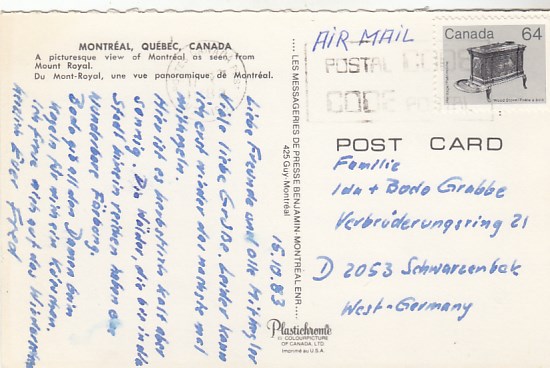 MONTRÉAL, QUÉBEC, CANADA
A picturesque view of Montréal as seen from
Mount Royal.
Du Mont-Royal, une vue panoramique de Montréal.
15.10.83
Liebe Freunde und alle Mitsegler
Viele liebe Grüße. Leider kann
ich erst wieder das nächste mal
mitkegeln.
Hier ist es herbstlich kalt aber
sonnig. Die Wälder, die bis in die
Stadt hinein reichen haben
wunderbare Färbung.
Bodo gib all den Damen beim
Kegeln für mich ein Küsschen.
Ich freue mich auf das Wiedersehen
Euer Fred
.... LES MESSAGERIES DE PRESSE BENJAMIN-MONTREAL ENR....
425 Guy-Montréal
Plastichrome
® COLOURPICTURE
OF CANADA, LTD
Imprimé au U.S.A.
AIR MAIL
Canada 64
POSTAL CODE
CODE POSTAL
POST CARD
Familie
Ida + Bodo Grabbe
Verbrüderungsring 21
D 2053 Schwarzenbek
West-Germany